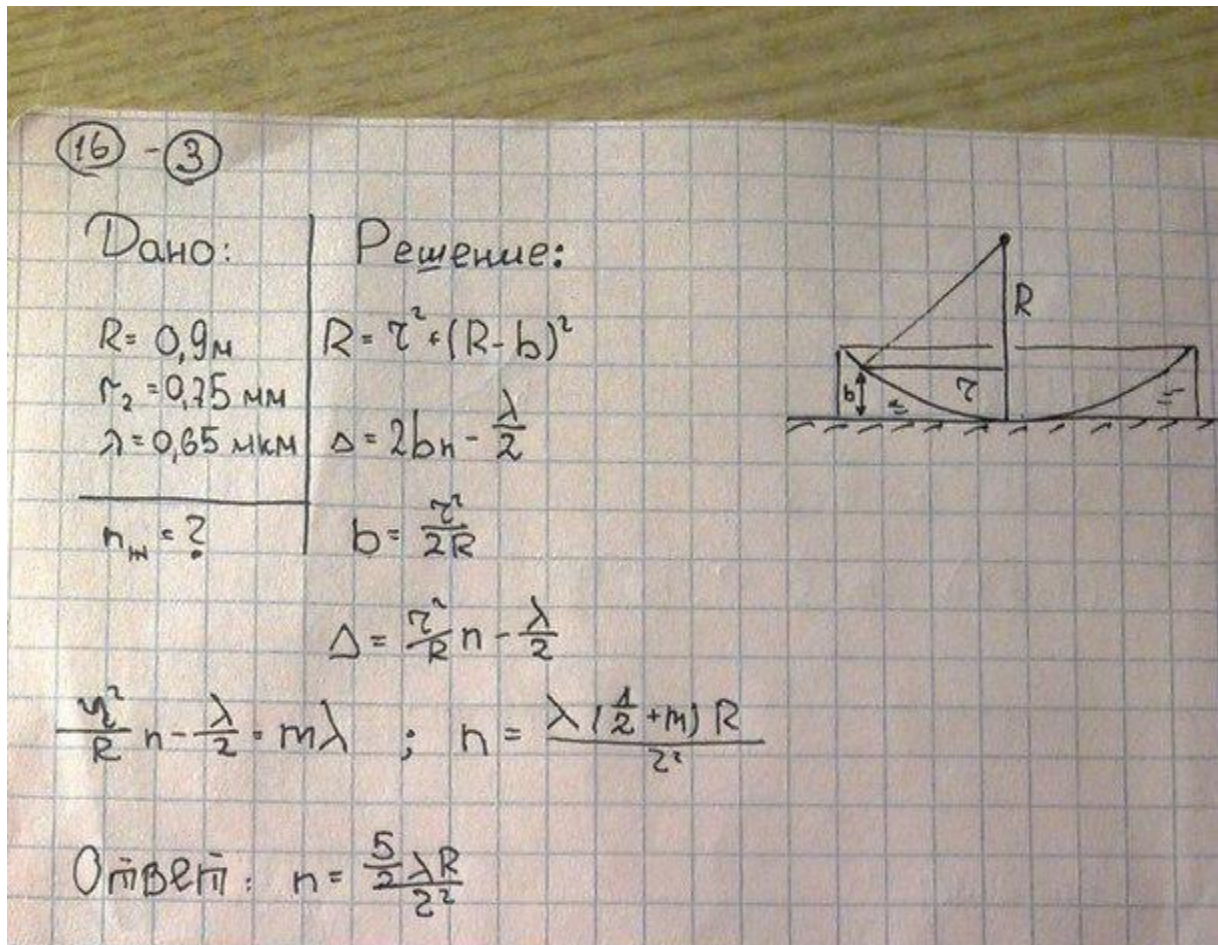 16 - 3
Дано:
R = 0,9м
r₂ = 0,75 мм
λ = 0,65 мкм
nж = ?
Решение:
R = r² + (R - b)²
Δ = 2bn - λ/2
b = r²/2R
Δ = r²/R n - λ/2
R
r
b
r²/R n - λ/2 = mλ ; n = λ(1/2 + m) R / r²
Ответ: n = 5/2 λR / r²